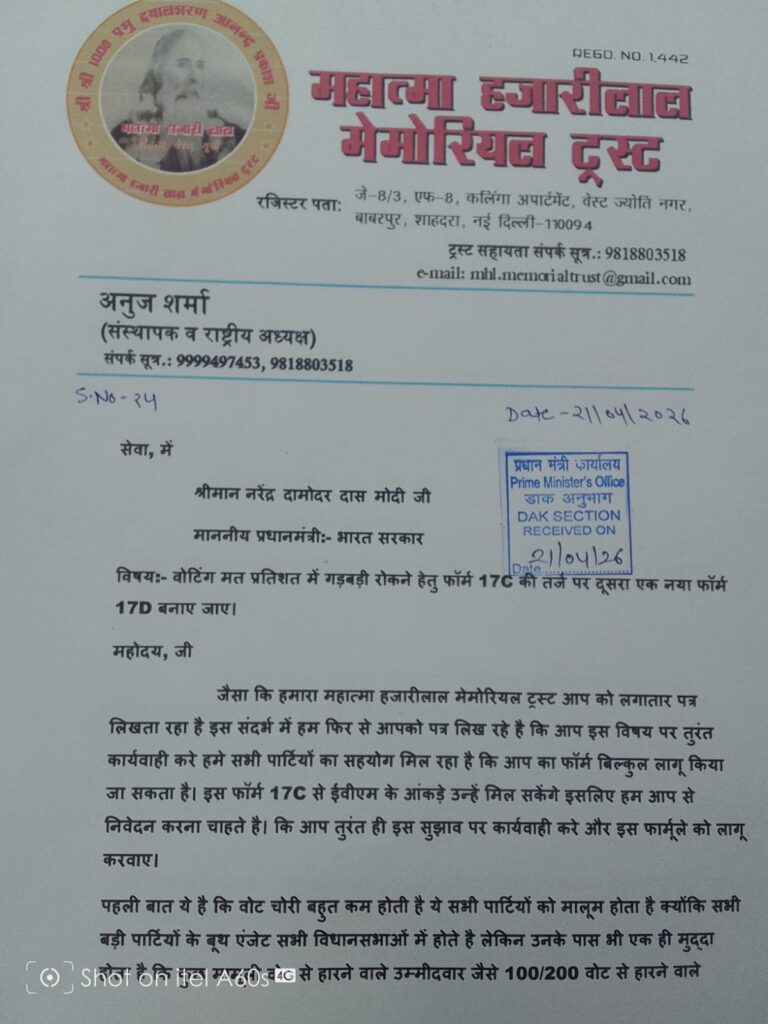 श्री श्री 1008 प्रभु दयालशरण आनन्द प्रकाश जी
महात्मा हजारी लाल
महात्मा हजारी लाल मेमोरियल ट्रस्ट
REGD. NO. 1,442
महात्मा हजारीलाल
मेमोरियल ट्रस्ट
रजिस्टर पता: जे-8/3, एफ-8, कलिंगा अपार्टमेंट, वेस्ट ज्योति नगर,
बाबरपुर, शाहदरा, नई दिल्ली-110094
ट्रस्ट सहायता संपर्क सूत्र.: 9818803518
e-mail: mhl.memorialtrust@gmail.com
अनुज शर्मा
(संस्थापक व राष्ट्रीय अध्यक्ष)
संपर्क सूत्र.: 9999497453, 9818803518
S.No-24
Date-21/04/2026
सेवा, में
श्रीमान नरेंद्र दामोदर दास मोदी जी
माननीय प्रधानमंत्री:- भारत सरकार
प्रधान मंत्री कार्यालय
Prime Minister's Office
डाक अनुभाग
DAK SECTION
RECEIVED ON
21/04/26
Date..................
विषय:- वोटिंग मत प्रतिशत में गड़बड़ी रोकने हेतु फॉर्म 17C की तर्ज पर दूसरा एक नया फॉर्म
17D बनाए जाए।
महोदय, जी
जैसा कि हमारा महात्मा हजारीलाल मेमोरियल ट्रस्ट आप को लगातार पत्र
लिखता रहा है इस संदर्भ में हम फिर से आपको पत्र लिख रहे है कि आप इस विषय पर तुरंत
कार्यवाही करे हमे सभी पार्टियों का सहयोग मिल रहा है कि आप का फॉर्म बिल्कुल लागू किया
जा सकता है। इस फॉर्म 17C से ईवीएम के आंकड़े उन्हें मिल सकेंगे इसलिए हम आप से
निवेदन करना चाहते है। कि आप तुरंत ही इस सुझाव पर कार्यवाही करे और इस फार्मूले को लागू
करवाए।
पहली बात ये है कि वोट चोरी बहुत कम होती है ये सभी पार्टियों को मालूम होता है क्योंकि सभी
बड़ी पार्टियों के बूथ एंजेट सभी विधानसभाओं में होते है लेकिन उनके पास भी एक ही मुद्दा
होता है कि कुछ मामूली वोट से हारने वाले उम्मीदवार जैसे 100/200 वोट से हारने वाले
Shot on itel A60s 4G